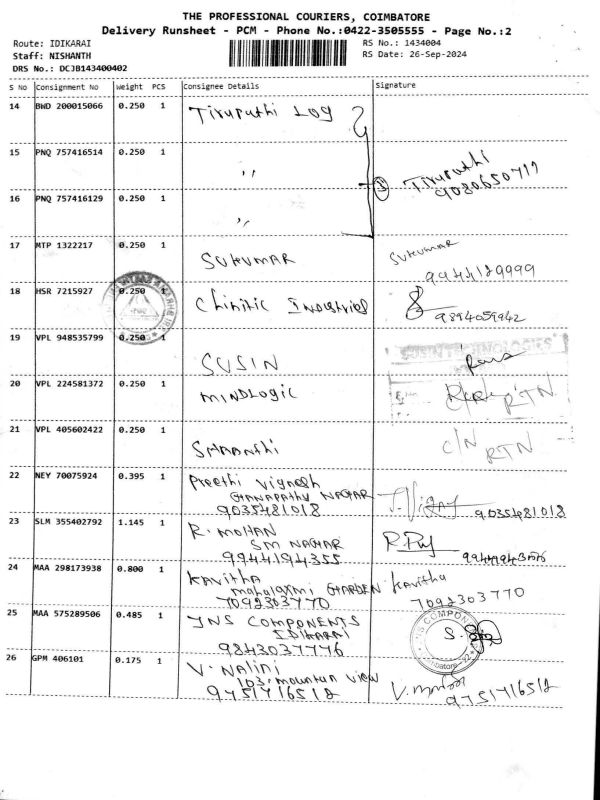 THE PROFESSIONAL COURIERS, COIMBATORE
Delivery Runsheet - PCM - Phone No.:0422-3505555 - Page No.:2
Route: IDIKARAI
RS No.: 1434004
Staff: NISHANTH
RS Date: 26-Sep-2024
DRS No.: DCJB143400402
S No Consignment No Weight PCS Consignee Details Signature
14 BWD 200015066 0.250 1 Tiruputhi Log
15 PNQ 757416514 0.250 1 ,,
3 Tiruputhi
16 PNQ 757416129 0.250 1 ,,
17 MTP 1322217 0.250 1 SUKUMAR SUKUMAR
9944129999
18 HSR 7215927 0.250 1 Industries
9894059942
19 VPL 948535799 0.250 1 SUSIN
SUSIN TECHNOLOGIES
20 VPL 224581372 0.250 1 MINDLOGIC RTN
21 VPL 405602422 0.250 1 C/N RTN
22 NEY 70075924 0.395 1 Preethi Vignesh
GANAPATHY NAGAR
9035481018 9035481018
23 SLM 355402792 1.145 1 R. MOHAN
SM NAGAR
9944194355
24 MAA 298173938 0.800 1 KAVITHA Kavitha
mahalaxmi GARDEN
7092303770 7092303770
25 MAA 575289506 0.485 1 JNS COMPONENTS
IDIKARAI
9843037776
26 GPM 406101 0.175 1 V. Nalini
103, mountan view
9751716512 9751716512